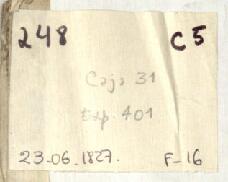 248 C5
Caja 31
Exp. 401
23-06.1827. F-16